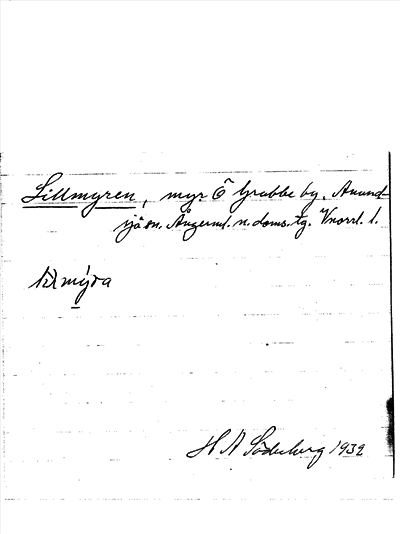 Lillmyren, myr Ö Grubbe by, Anund-
sjö sn. Ångerml. n. doms. tg. Vnorrl. l.
H A Söderberg 1932